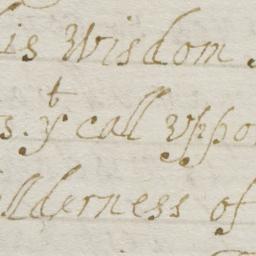 is Wisdom.
s. yt call vppo
ilderness of